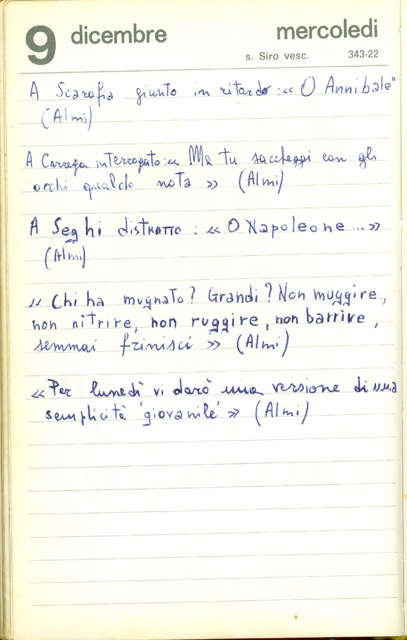 9 dicembre mercoledi
s. Siro vesc. 343-22
A Scarafia giunto in ritardo: « O Annibale"
(Almi)
A Carrega interrogato: « Ma tu saccheggi con gli
occhi qualche nota » (Almi)
A Seghi distratto : « O Napoleone ... »
(Almi)
" Chi ha mugnato? Grandi? Non muggire,
non nitrire, non ruggire, non barrire,
semmai frinisci » (Almi)
« Per lunedì vi darò una versione di una
semplicità 'giovanile' » (Almi)